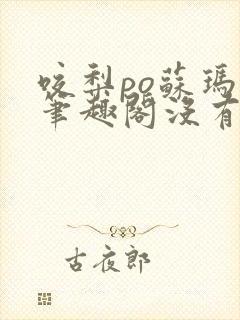 咬梨po蘇瑪
筆趣閣沒有
古夜郎